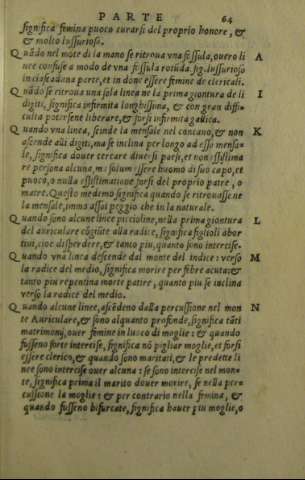 PARTE 64
significa femina puoco curarsi del proprio honore, &
& molto lussuriosa.
Quãdo nel mõte di la mano se ritroua vna fissula, ouero li A
nee confuse a modo de vna fissula rotũda. sig. lussurioso
in ciascaduna parte, et in donc essere femine de clericali.
Quãdo se ritroua una sola linea ne la prima giontura de li I
digiti, significa infirmita longhissima, & con gran diffi-
culta potersene liberare, & forsi infirmita gallica.
Quando vna linea, scinde la mensale nel concauo, & non K
ascende ali digiti, ma se inclina per longo ad essa mensa-
le, significa douer cercare diuersi paesi, et non estima
re persona alcuna, ma solum essere huomo di suo capo, et
puoco, o nulla estimatione farsi del proprio patre, o
matre. Questo medemo significa quando se ritrouasse ne
la mensale, immo assai peggio che sia la naturale.
Quando sono alcune linee piccioline, nella prima giontura L
del auriculare cõgiũte alla radice, significa figlioli abor
tiui, cioe disperdere, & tanto piu, quanto sono intercise.
Quando vna linea descende dal monte del indice: verso M
la radice del medio, significa morire per fibre acuta: &
tanto piu repentina morte patire, quanto piu se inclina
verso la radice del medio.
Quando alcune linee, ascẽdeno dalla percussione nel mon N
te Auriculare, & sono alquanto profonde, significa tãti
matrimonij, ouer femine in luoco di moglie: & quando
fusseno forte intercise, significa nõ pigliar moglie, et forsi
essere clerico, & quando sono maritati, & le predette li
nee sono intercise ouer alcuna: se sono intercise nel mon-
te, significa prima il marito douer morire, se nella per-
cussione la moglie: & per contrario nella femina, &
quando fusseno bifurcate, significa hauer piu moglie, o